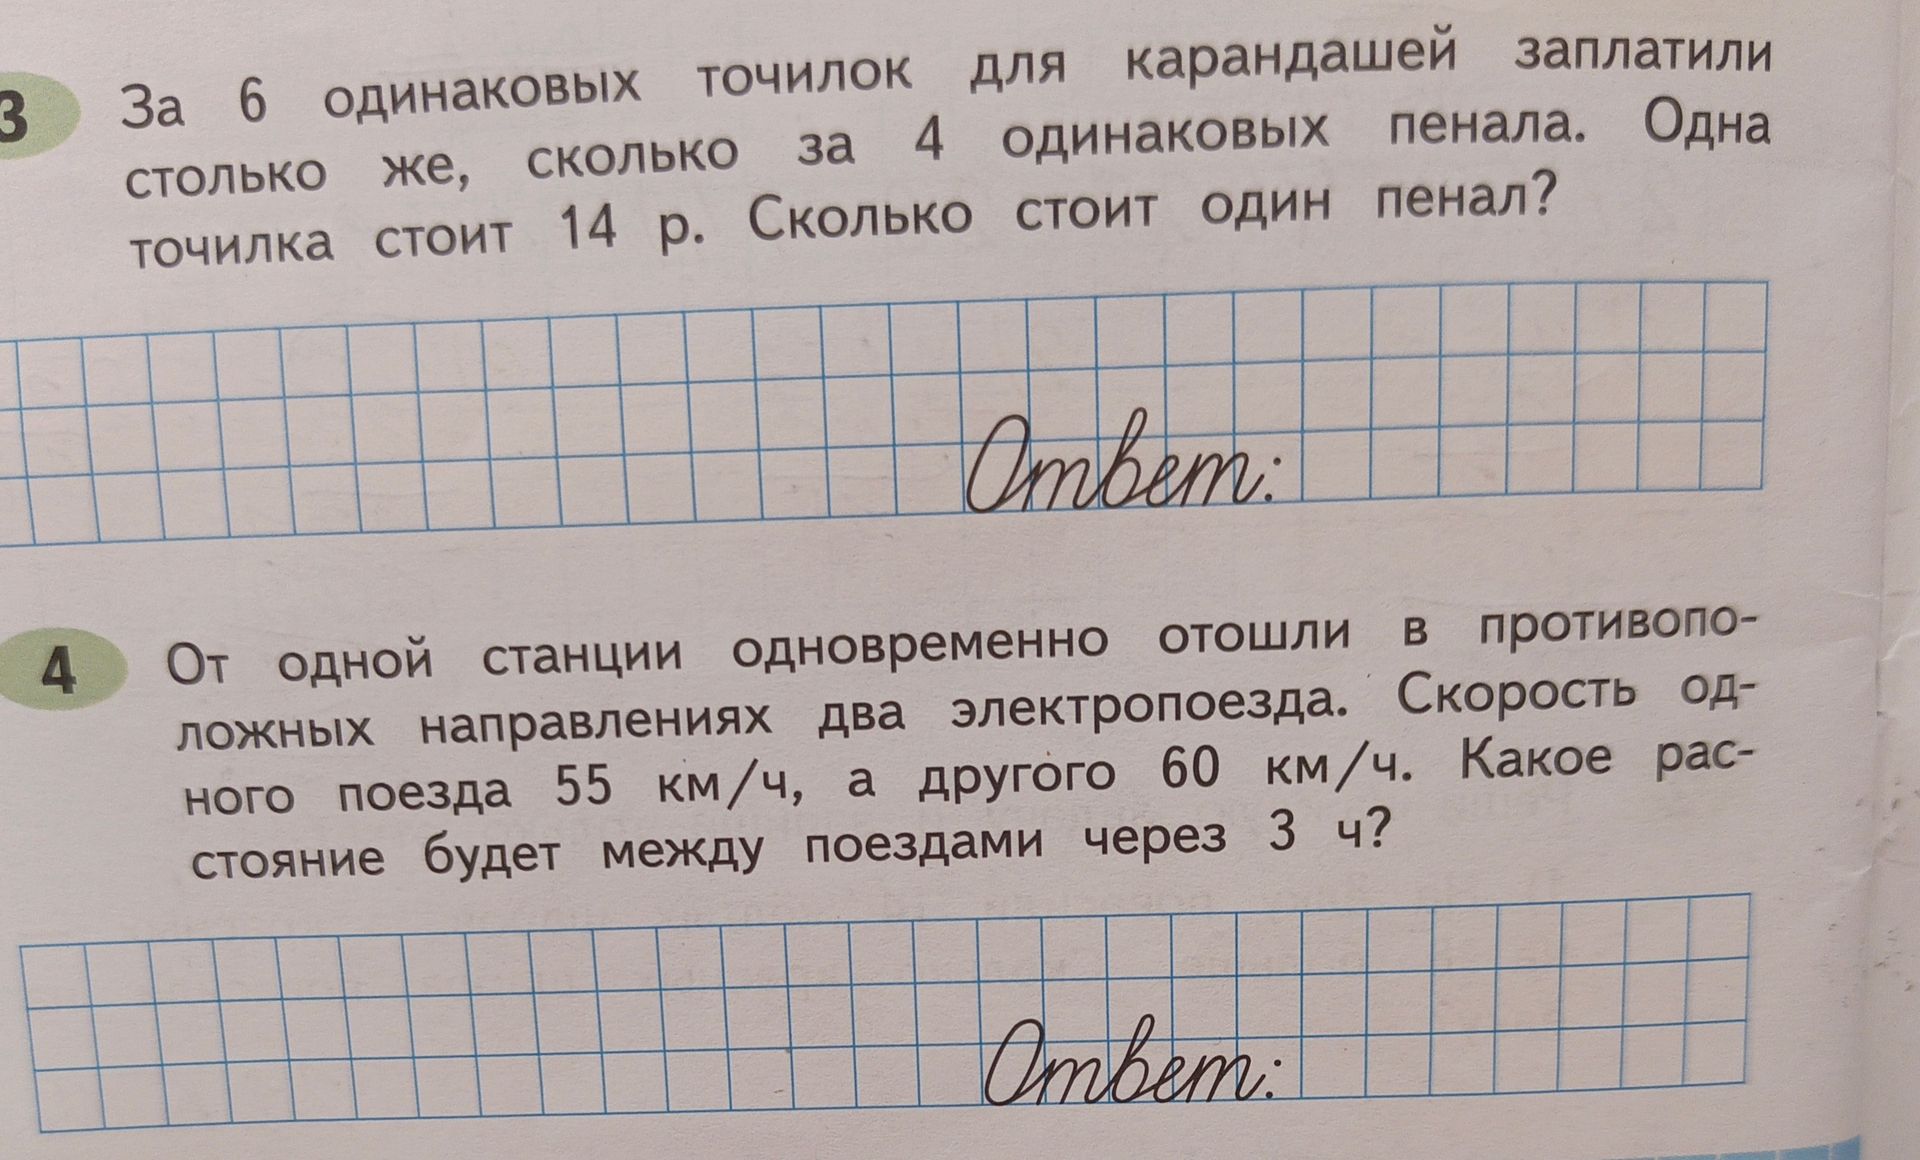 3 За 6 одинаковых точилок для карандашей заплатили
столько же, сколько за 4 одинаковых пенала. Одна
точилка стоит 14 р. Сколько стоит один пенал?
Ответ:
4 От одной станции одновременно отошли в противопо-
ложных направлениях два электропоезда. Скорость од-
ного поезда 55 км/ч, а другого 60 км/ч. Какое рас-
стояние будет между поездами через 3 ч?
Ответ: